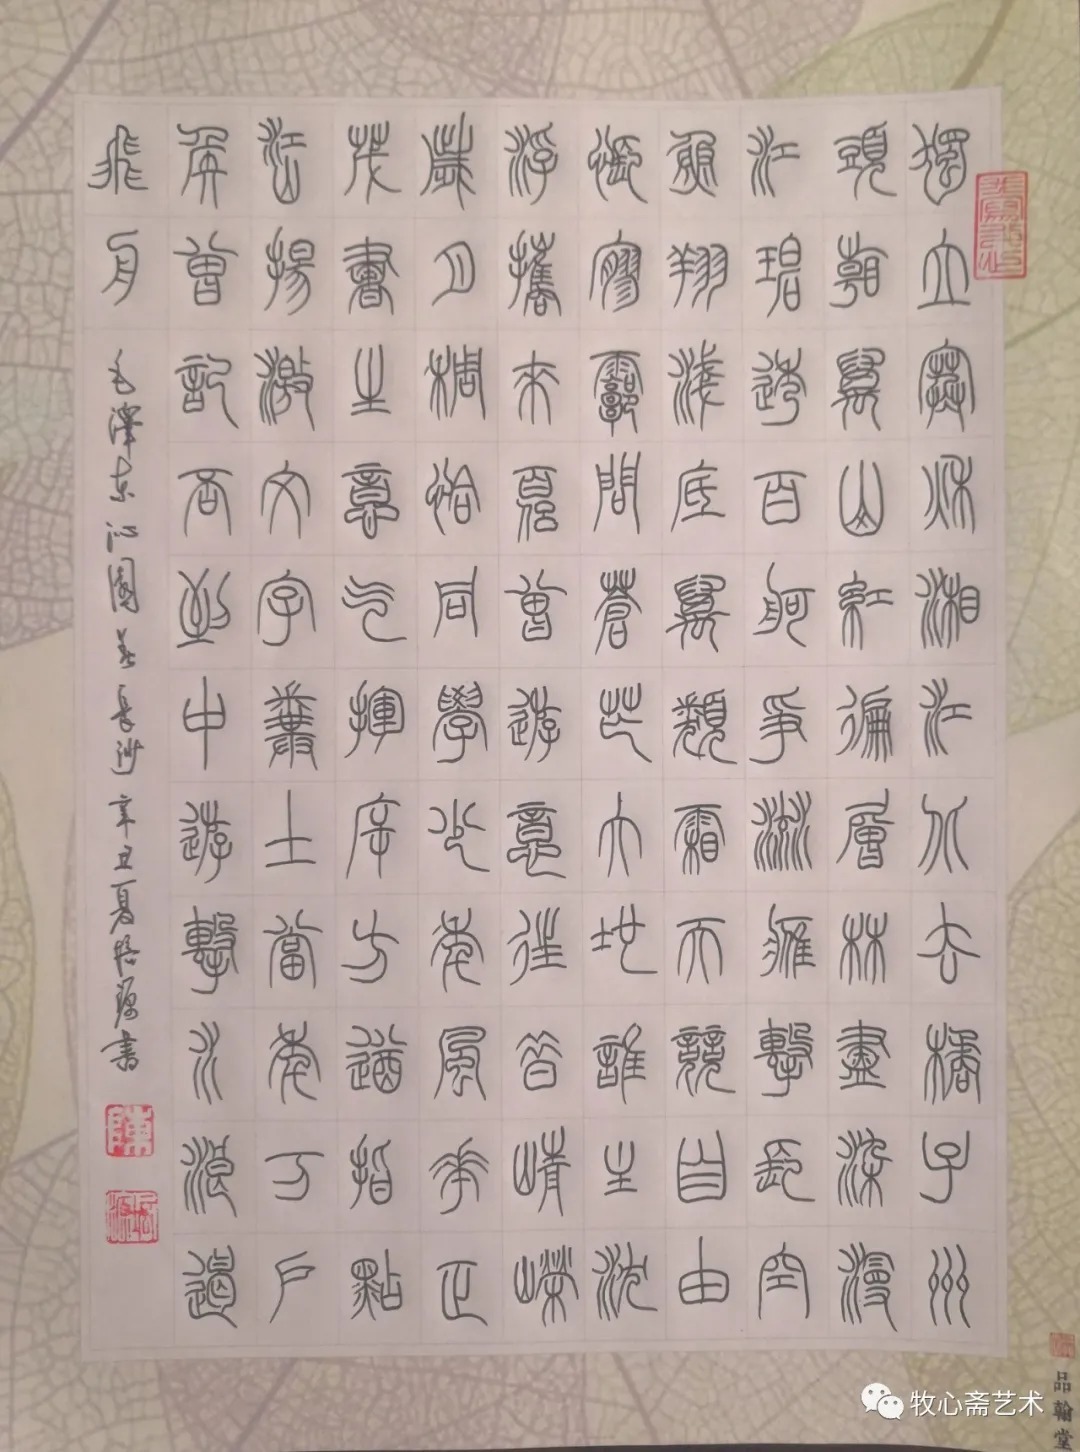 獨立寒秋湘江北去橘子州
頭看萬山紅徧層林盡染漫
江碧透百舸爭流鷹擊長空
魚翔淺底萬類霜天競自由
悵寥霩問蒼茫大地誰主沈
浮攜來百侶曾遊意往昔崢嶸
歲月稠恰同學少年風華正
茂書生意气揮斥方遒指點
江山揚激文字糞土當年万戶
侯曾記否到中遊擊水浪遏
飛舟
毛澤東沁園春長沙辛丑夏悟源書
陳
悟源
品翰堂
牧心斋艺术